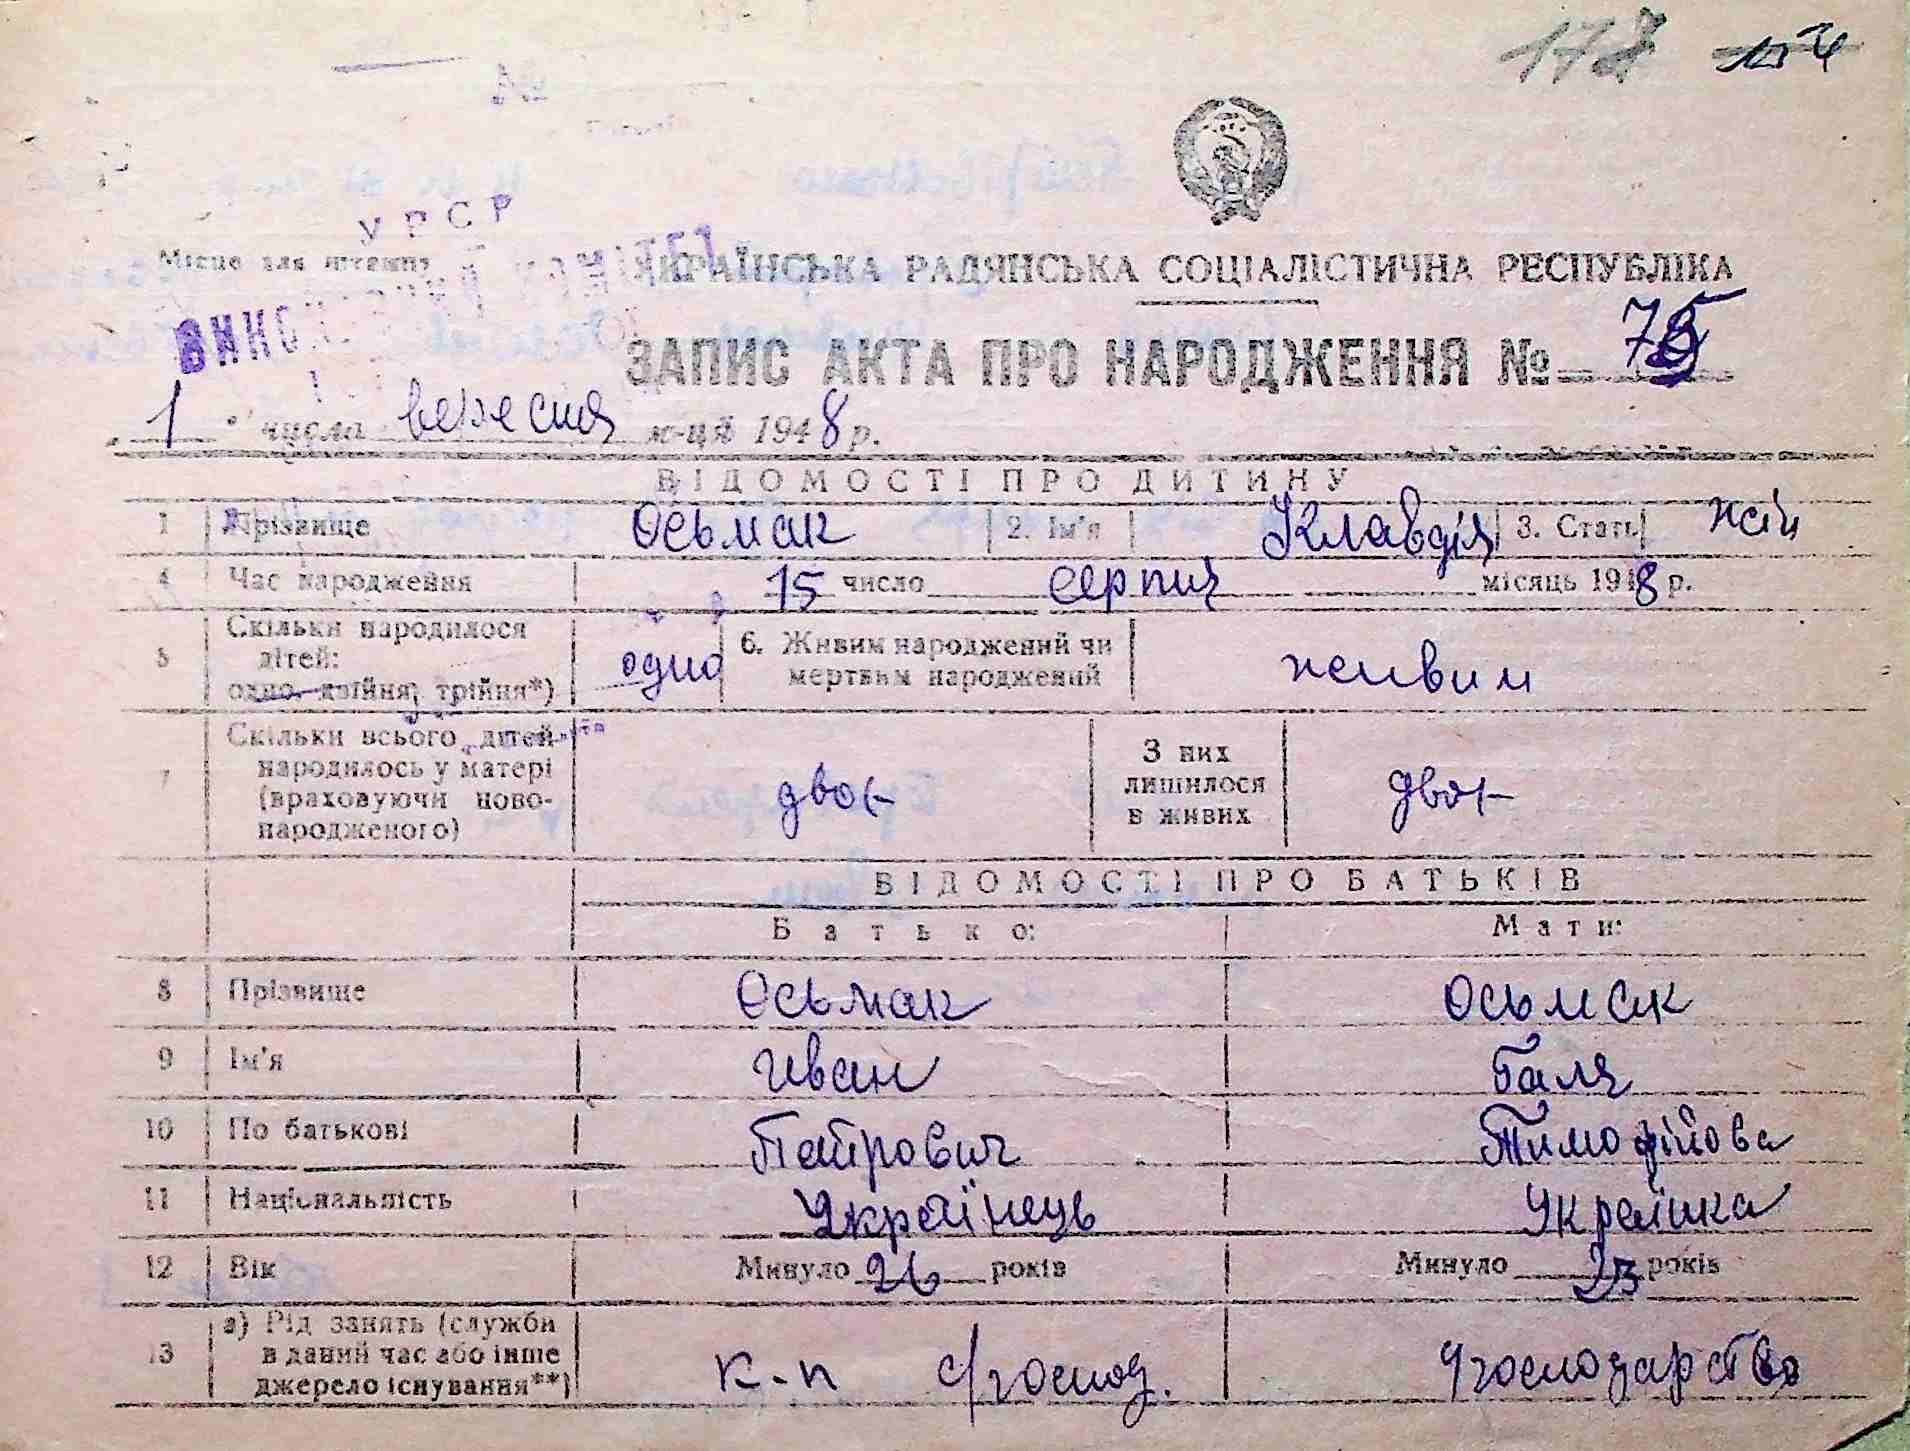 178
УРСР
Місце для штампу
УКРАЇНСЬКА РАДЯНСЬКА СОЦІАЛІСТИЧНА РЕСПУБЛІКА
ЗАПИС АКТА ПРО НАРОДЖЕННЯ № 75
1 числа вересня м-ця 1948 р.
ВІДОМОСТІ ПРО ДИТИНУ
1 Прізвище Осьмак 2. Ім'я Клавдія 3. Стать жін
4 Час народження 15 число серпня місяць 1948 р.
5 Скільки народилося дітей: одно, двійня, трійня*) одно 6. Живим народжений чи мертвым народжений живим
7 Скільки всього дітей народилось у матері (враховуючи ново-народженого) двоє З них лишилося в живих двоє
ВІДОМОСТІ ПРО БАТЬКІВ
Батько: Мати:
8 Прізвище Осьмак Осьмак
9 Ім'я Иван Галя
10 По батькові Петрович Тимофійова
11 Національність Українець Украінка
12 Вік Минуло 26 років Минуло 23 років
13 а) Рід занять (служби в даний час або інше джерело існування**) к-п с/господ. У господарство